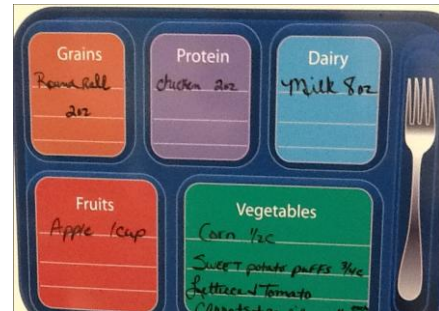 Grains
Round Roll
2oz
Protein
chicken 2oz
Dairy
Milk 8oz
Fruits
Apple 1cup
Vegetables
Corn 1/2c
SWEET potato puffs 3/4c
Lettuce & Tomato